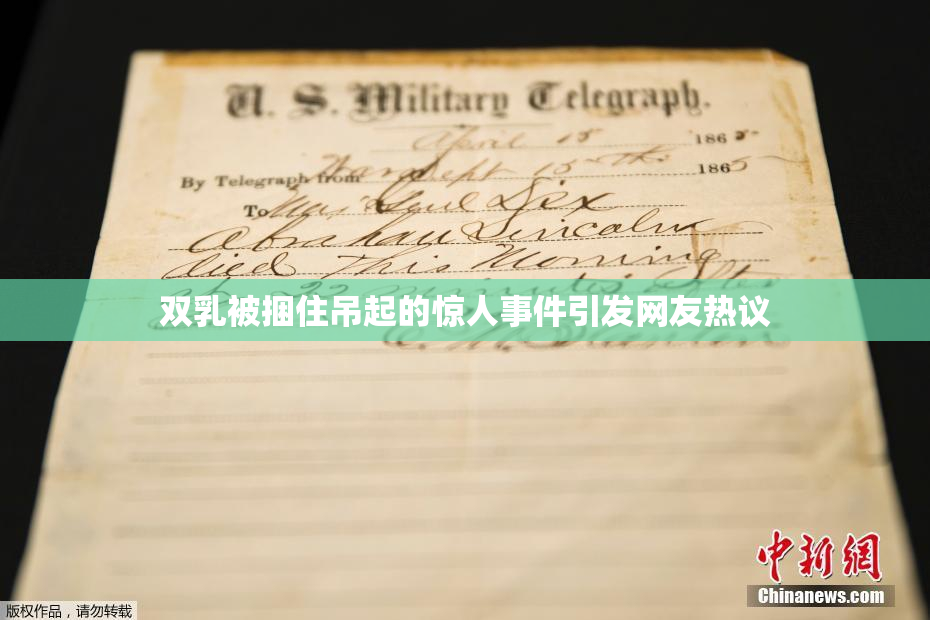 U. S. Military Telegraph.
April 15 1865
By Telegraph from War Dept 15 1865
To Maj Genl Dix
Abraham Lincoln
died This Morning
at 22 minutes after
双乳被捆住吊起的惊人事件引发网友热议
E. M. Stanton
中新网
Chinanews.com
版权作品，请勿转载